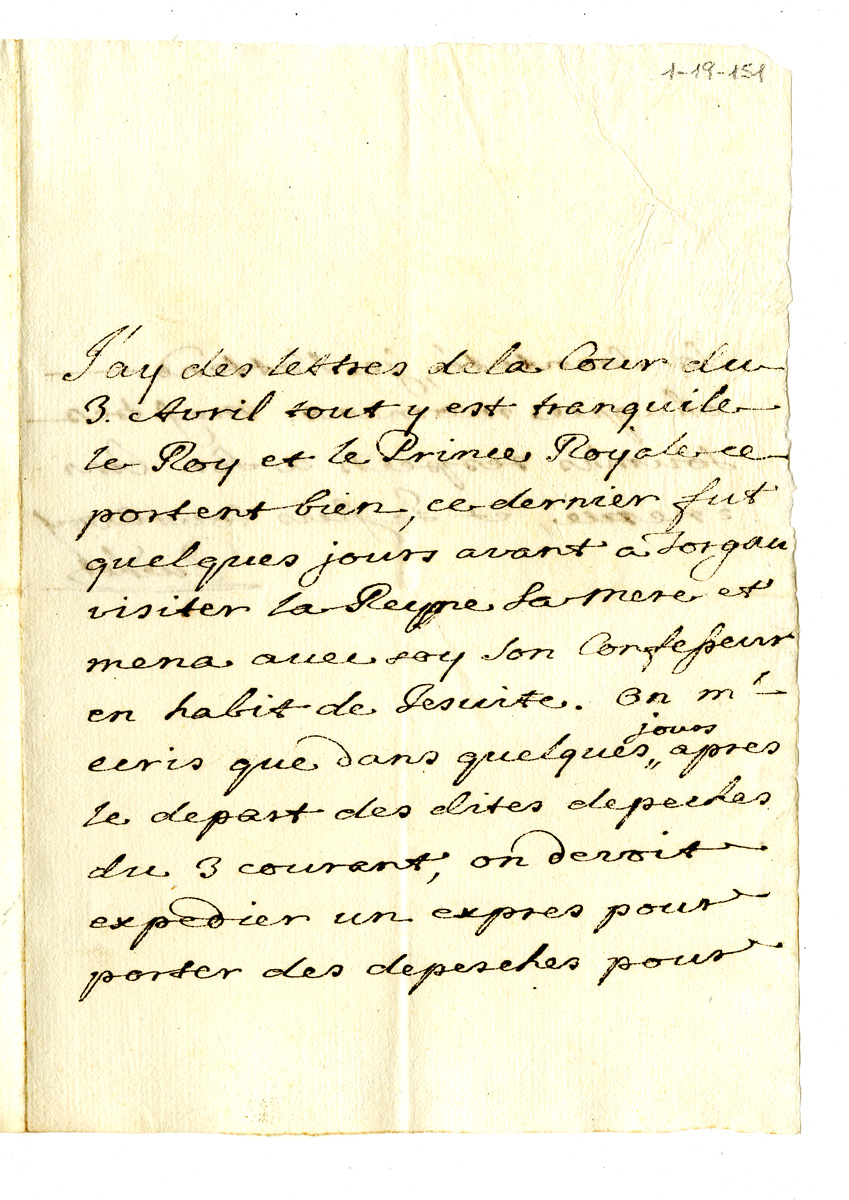 1-19-151
J'ay des lettres de la Cour du
3. Avril tout y est tranquile
le Roy et le Prince Royale ce
portent bien, ce dernier fut
quelques jours avant a Torgau
visiter la Reyne Sa mere et
mena avec soy son Confesseur
en habit de Jesuite. On m'
ecris que dans quelques jours apres
le depart des dites depeches
du 3 courant, on devoit
expedier un expres pour
porter des depesches pour